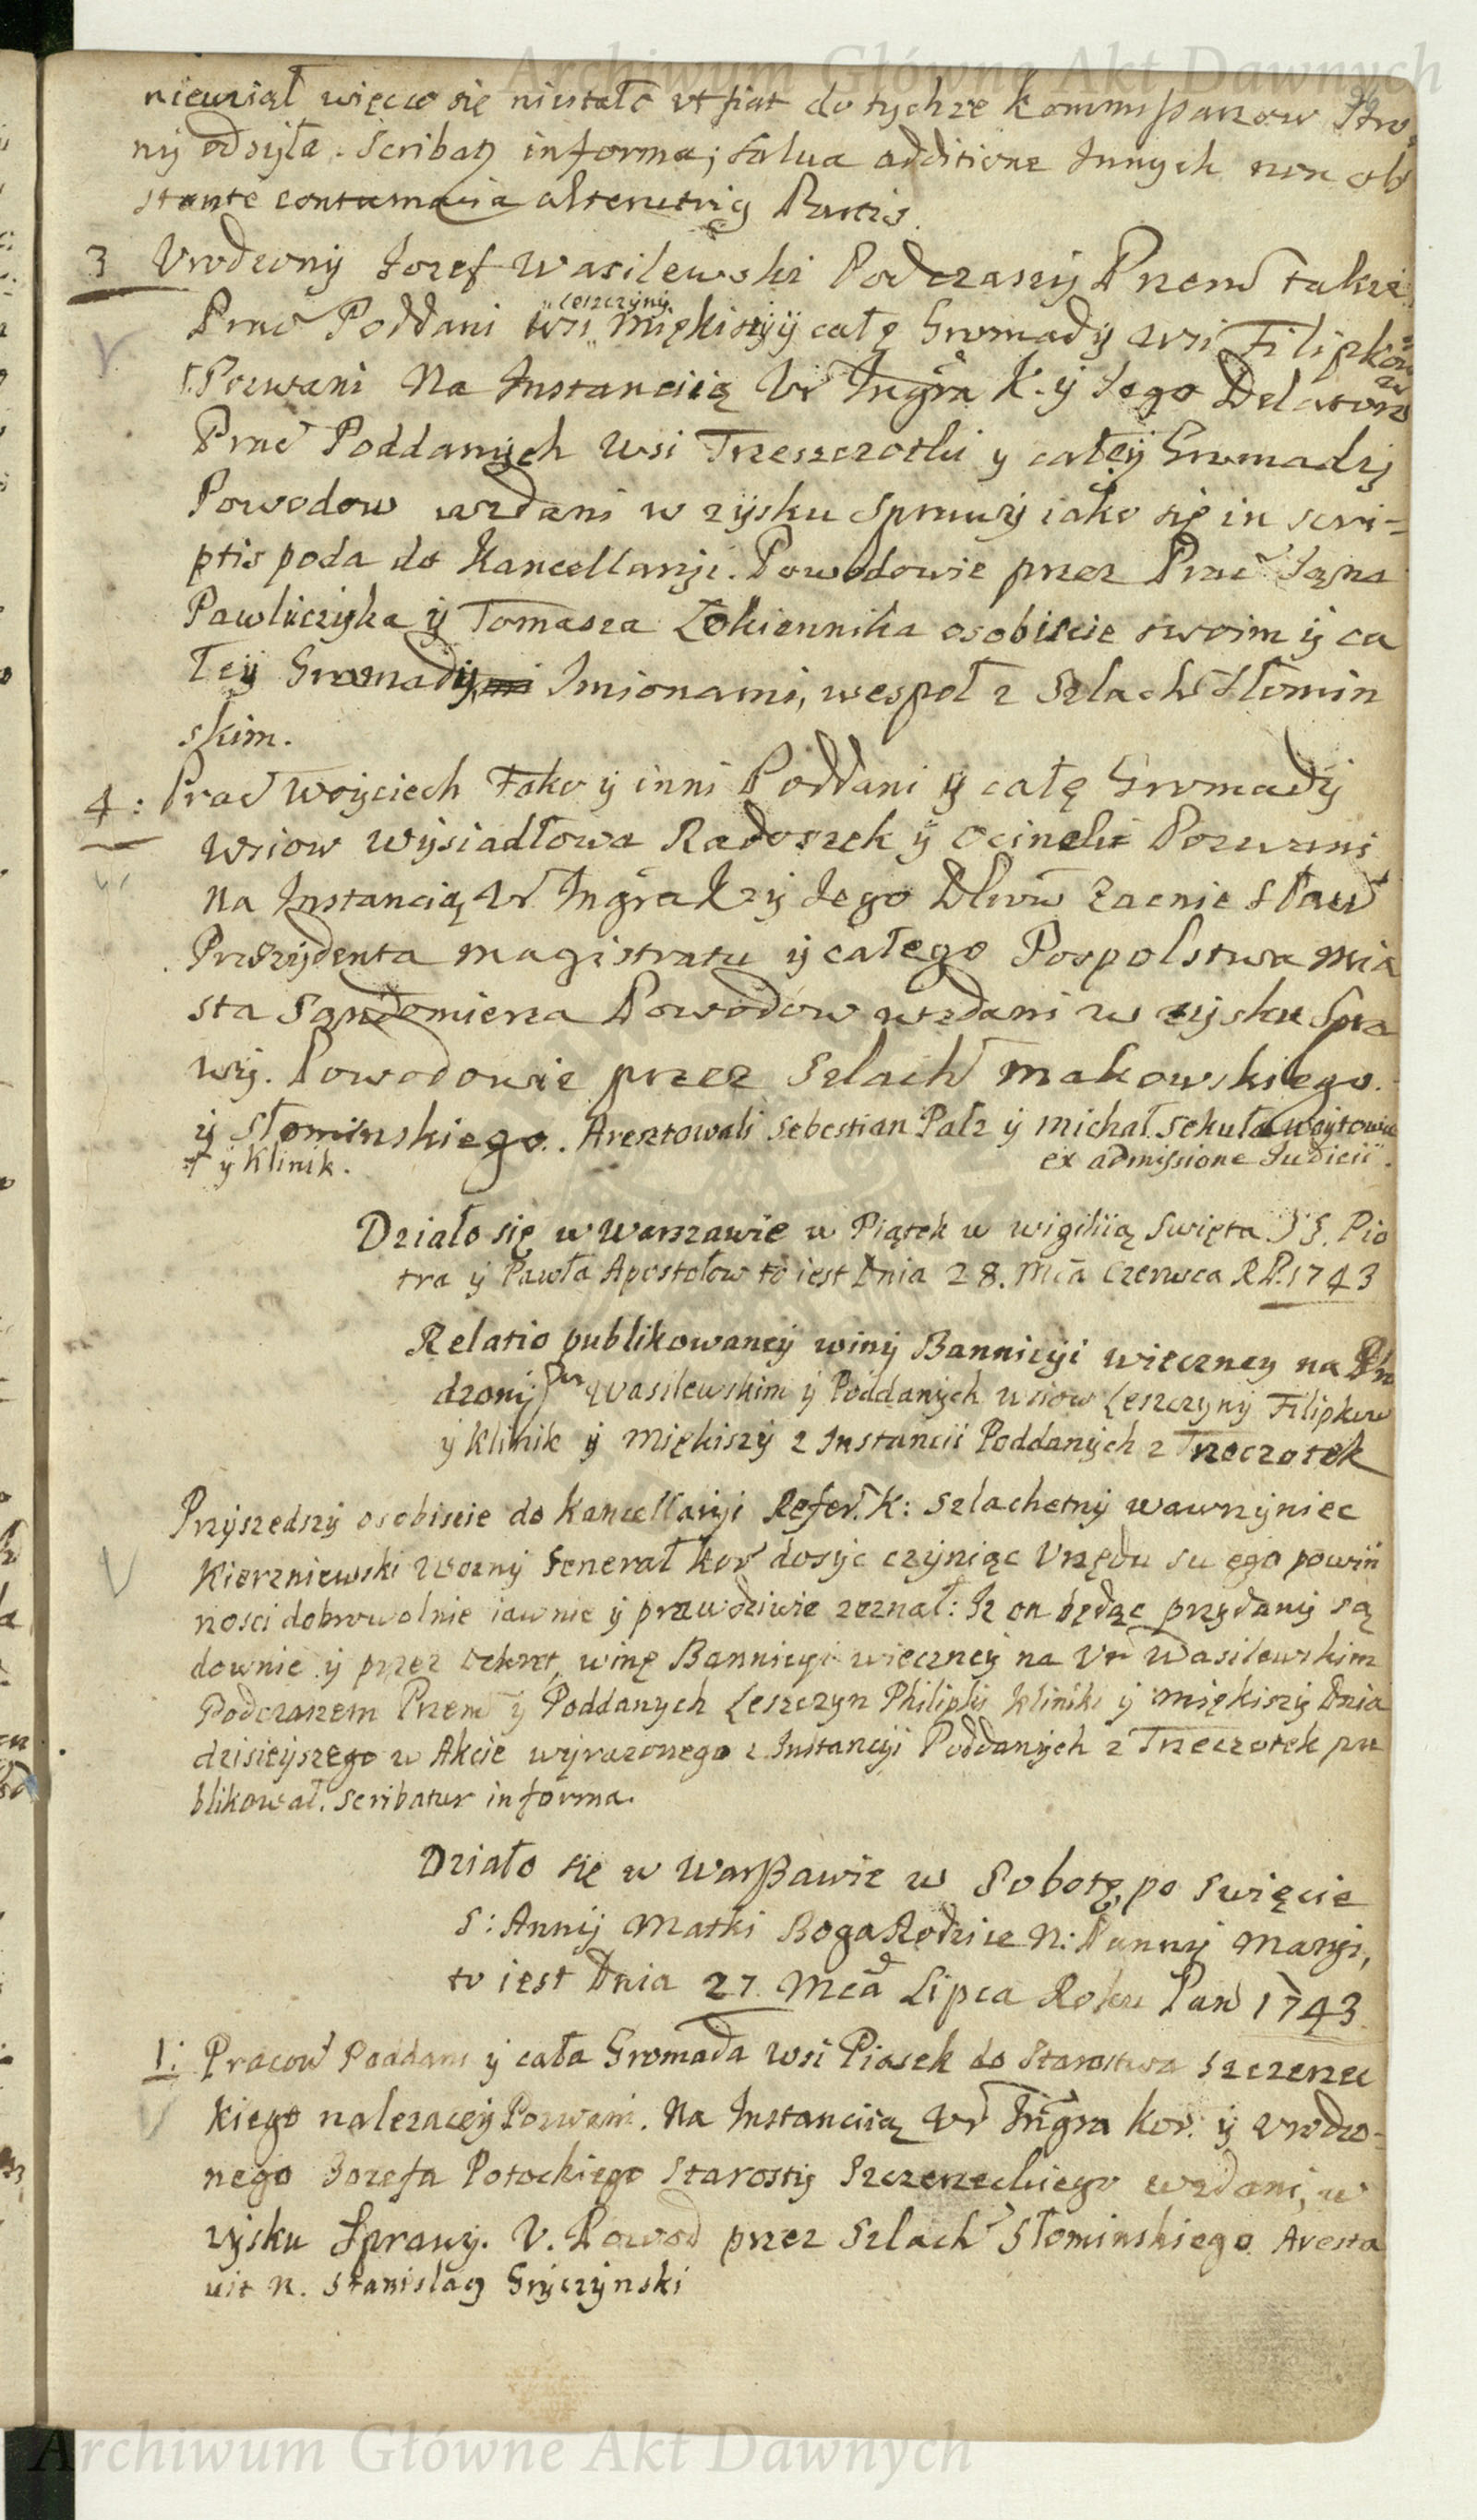 Archiwum Główne Akt Dawnych
niewział więcw się niestało vt fiat do tychże kommissarzow Stro
ny odsyła. Scribatꝫ in forma; salua additione Innych non ob
stante contumacia alterutrius Partis.
3 Vrodzony Iozef Wasilewski Podczaszy Przem także
Prac Poddani wsi Leszczyny, Miękiszyy całę Gromady wsi Filipkow
Pozwani Na Instanciią Vr Ingra K. y Iego Delatora
Prac Poddanych wsi Trzeszczotki y całey Gromady
Powodow wzdani w zysku Sprawy iako się in scri-
ptis poda do Kancellaryi. Powodowie przez Prac Iana
Pawluczyka y Tomasza Łokiennika osobiscie swoim y ca
łey Gromady Imionami, wespoł z Szlach Słomin
skim.
4: Prac Woyciech Fako y inni Poddani y całę Gromady
wsiow Wysiadłowa Radoszek y Ocinek Pozwani
Na Instancią Vr Ingra K y Iego Dlww Zacnie Sław
Prezydenta magistratu y całego Pospolstwa mia
sta Sandomierza Powodow wzdani w zysku Spra
wy. Powodowie przez Szlach Makowskiego.
y Słominskiego.. Aresztowali Sebestian Pałz y Michał Sekuła Woytowie
+ y Klinik. ex admissione Iudicii.
Działo się w Warszawie w Piątek w wigiliią Swięta SS. Pio
tra y Pawła Apostołow to iest Dnia 28. Mca Czerwca RP. 1743
Relatio publikowaney winy Bannicyi wieczney na
dzony Wasilewskim y Poddanych wsiow Leszczyny Filipkow
y Klinik y Miękiszy z Instancii Poddanych z Trzeczotek
Przyszedszy osobiscie do Kancellaryi Refer. K: Szlachetny Wawrzyniec
Kierzniewski Wozny Generał Kor dosyc czyniąc Vrzędu swego powin
nosci dobrowolnie iawnie y prawdziwie zeznał: Iz on będąc przydany są
downie y przez Dekret, winę Bannicyi wieczney na Vr Wasilewskim
Podczaszem Przem y Poddanych Leszczyn Philipky Kliniki y Miękiszy Dnia
dzisieyszego w Akcie wyrazonego z Instancyi Poddanych z Trzeczotek pu
blikował. Scribatur in forma.
Działo się w Warszawie w Sobotę, po Swięcie
S: Anny Matki BogaRodzice N: Panny Maryi,
to iest Dnia 27. Mca Lipca Roku Pan 1743
1: Pracow Poddani y cała Gromada wsi Piasek do Starostwa Szczerzec
kiego nalezacey Pozwani. Na Instanciią Vr Ingra Kor. y Vrodzo-
nego Iozefa Potockiego Starosty Szczerzeckiego wzdani, w
zysku Sprawy. V. Powod przez Szlach Słominskiego Aresta
uit N. Stanislaꝫ Gryczynski
Archiwum Główne Akt Dawnych